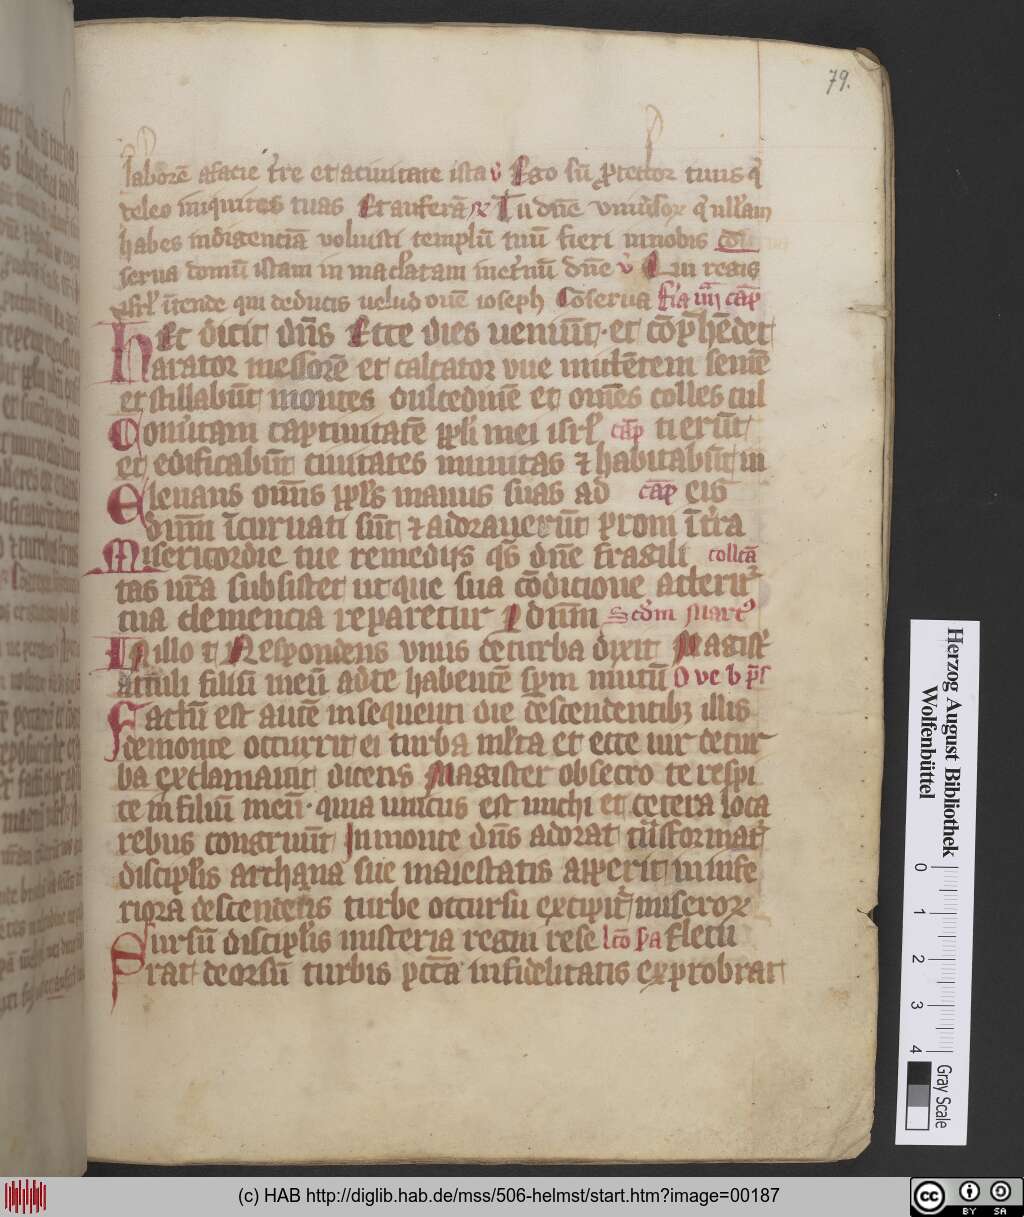 79.
laborē afacie t̄re et a ciuitate ista v̓ Ego sū ꝓtector tuus qͥ
deleo iniquites tuas Et auferā ꝶ Tu dn̄e vniu̓soꝝ qͥ nullam
habes indigenciā voluisti templū tuū fieri in nobis
serua domū istam in maclatam inet̓nū dn̄e v̓ Qui regis
isrl̓ īntende qui deducis velud ouē ioseph Cōserua fīa iiij cap̄
Hec dicit dn̄s Ecce dies veniūt · et cōp̄hēdet
arator messorē et calcator vue mittētem semē
et stillabūt montes dulcedinē et om̄es colles cul
Conu̓tam captiuitatē ppl̓i mei isrl̓ cap̄ ti erūt
et edificabūt ciuitates munitas ⁊ habitabūt in
Eleuans om̄is ppl̓s manus suas ad cap̄ eis
dūm īcuruati sūt ⁊ adorauerūt prom̄ ī t̓ra
Misericordie tue remedijs qs̄ dn̄e fragili collcā
tas nr̄a subsistet ut que sua cōdicione atterit̓
tua clemencia reparetur P dn̄m Scd̄m Marcū
In illo t̄ Respondens vnus de turba dixit Magist̓
attuli filiū meū ad te habentē spm̄ mutū
Factū est autē in sequenti die descendentibꝫ illis
demonte occurrit ei turba ml̓ta et ecce uir de tur
ba exclamauit dicens Magister obsecro te respi
ce in filiū meū · quia unicus est michi et cetera loca
rebus congruūt In monte dn̄s adorat trāsformat̓
discipl̓is archana sue maiestatis apperit in infe
riora descendens turbe occursu excipit̓ miseroꝝ
Sursū discipl̓is misteria regni rese lc̄o s̄a fletu
rat deorsū turbis pcc̄a infidelitatis exprobrat
Herzog August Bibliothek
Wolfenbüttel
0 1 2 3 4
Gray Scale
(c) HAB http://diglib.hab.de/mss/506-helmst/start.htm?image=00187
cc BY SA